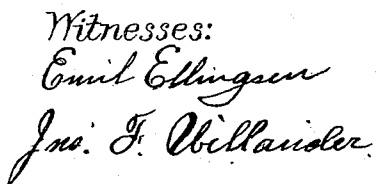 Witnesses:
Emil Ellingsen
Jno. F. Willander.